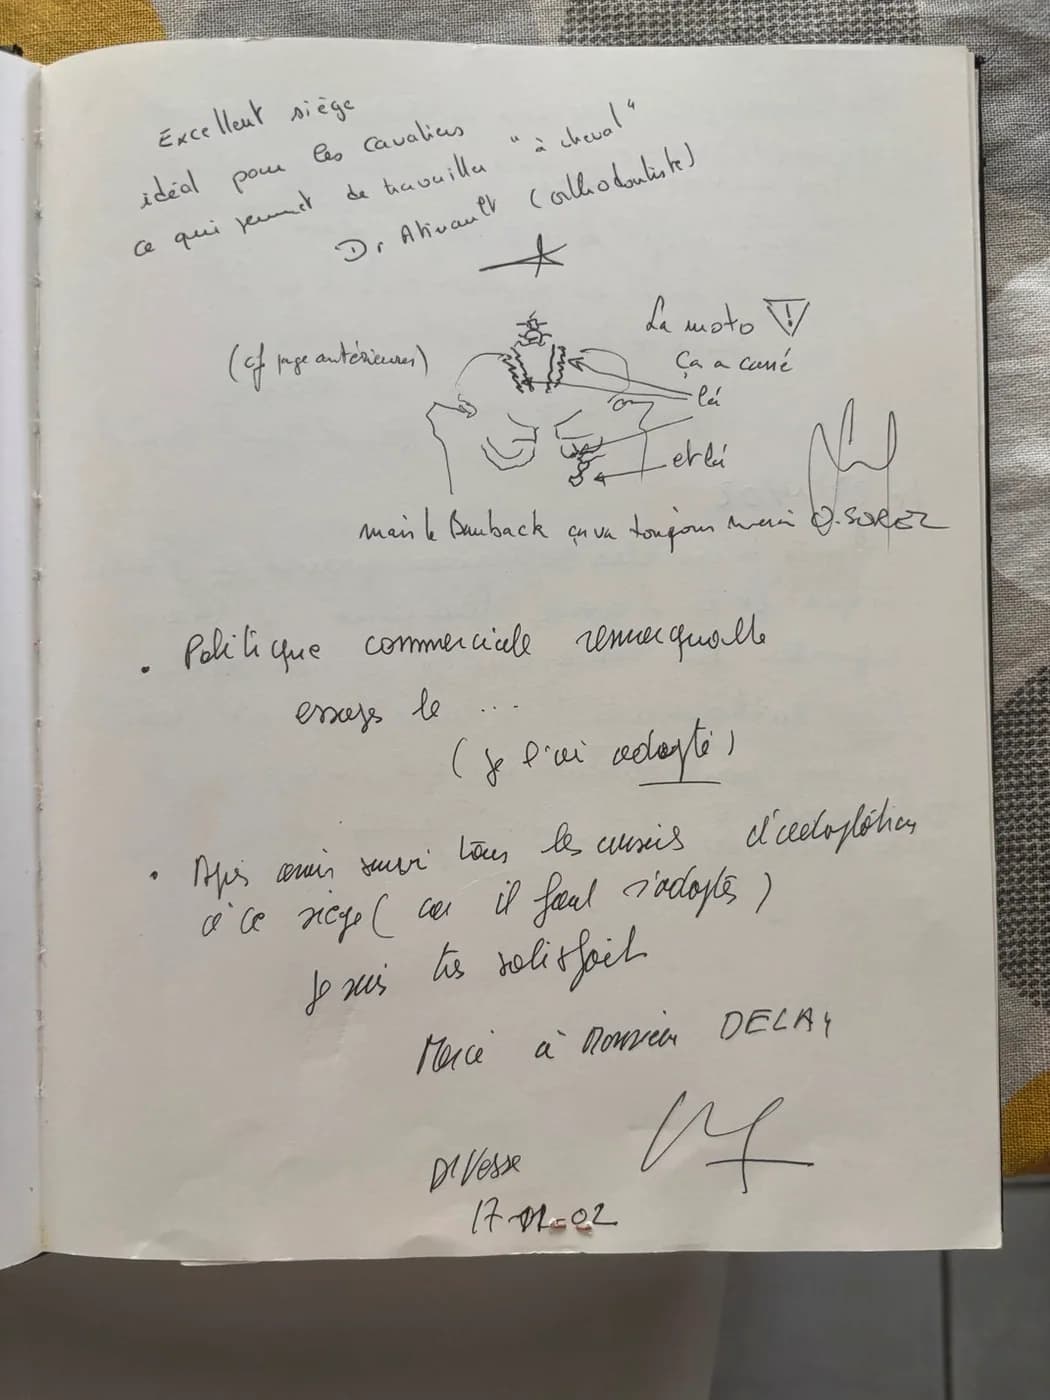 Excellent siège
idéal pour les cavaliers
ce qui permet de travailler "à cheval"
Dr (orthodontiste)
La moto !
(cf page antérieures)
ça a cassé
là
et là
mais le Bamback ça va toujours merci D. SOREZ
• Politique commerciale remarquable
essayer le ...
(je l'ai adopté)
• Après avoir suivi tous les conseils d'adaptation
à ce siège (car il faut s'adapter)
je suis très satisfait
Merci à Monsieur DELAY
17-02